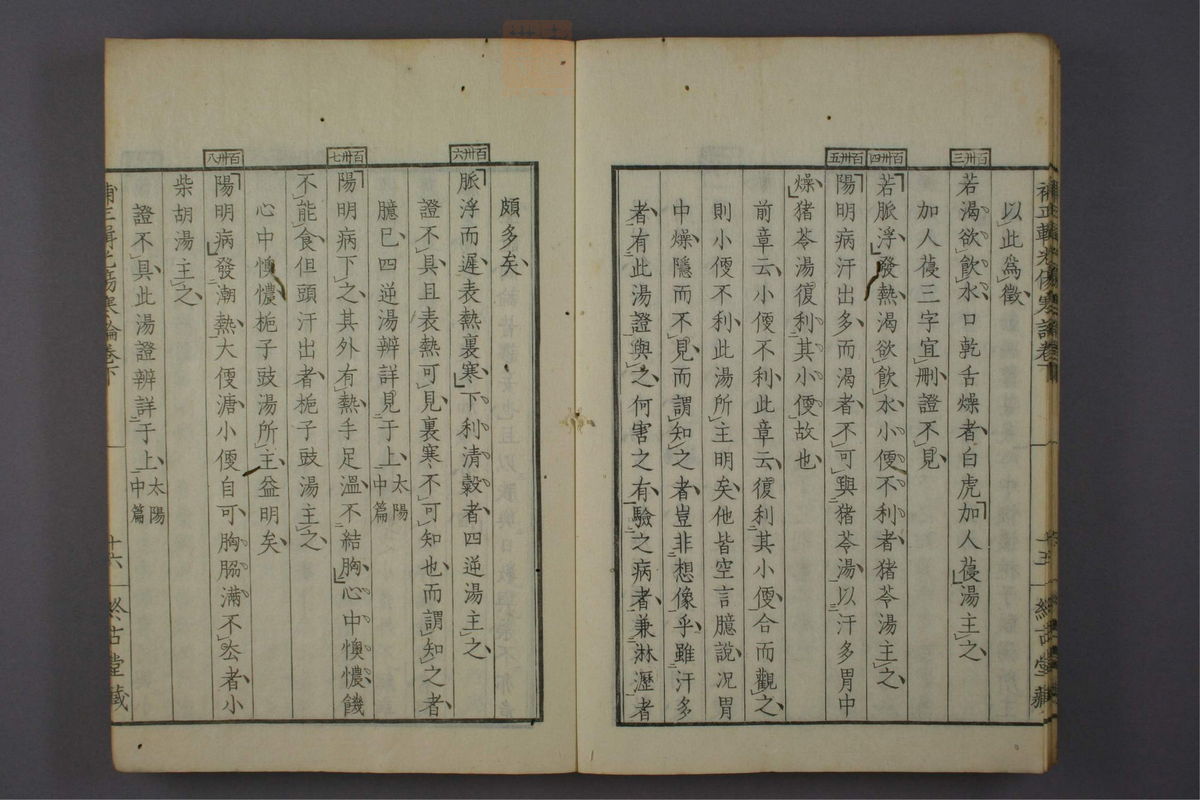 補正輯光傷寒論卷下
以此爲徵
百卅三
若渴欲飮水口乾舌燥者白虎加人葠湯主之
加人葠三字宜刪證不見
百卅四
若脈浮發熱渴欲飮水小便不利者猪苓湯主之
百卅五
陽明病汗出多而渴者不可與猪苓湯以汗多胃中
燥猪苓湯復利其小便故也
前章云小便不利此章云復利其小便合而觀之
則小便不利此湯所主明矣他皆空言臆說况胃
中燥隱而不見而謂知之者豈非想像乎雖汗多
者有此湯證與之何害之有驗之病者兼淋瀝者
頗多矣
百卅六
脈浮而遲表熱裏寒下利清穀者四逆湯主之
證不具且表熱可見裏寒不可知也而謂知之者
臆已四逆湯辨詳見于上太陽中篇
百卅七
陽明病下之其外有熱手足溫不結胸心中懊憹饑
不能食但頭汗出者梔子豉湯主之
心中懊憹梔子豉湯所主益明矣
百卅八
陽明病發潮熱大便溏小便自可胸脇滿不去者小
柴胡湯主之
證不具此湯證辨詳于上太陽中篇
十六
終古堂藏